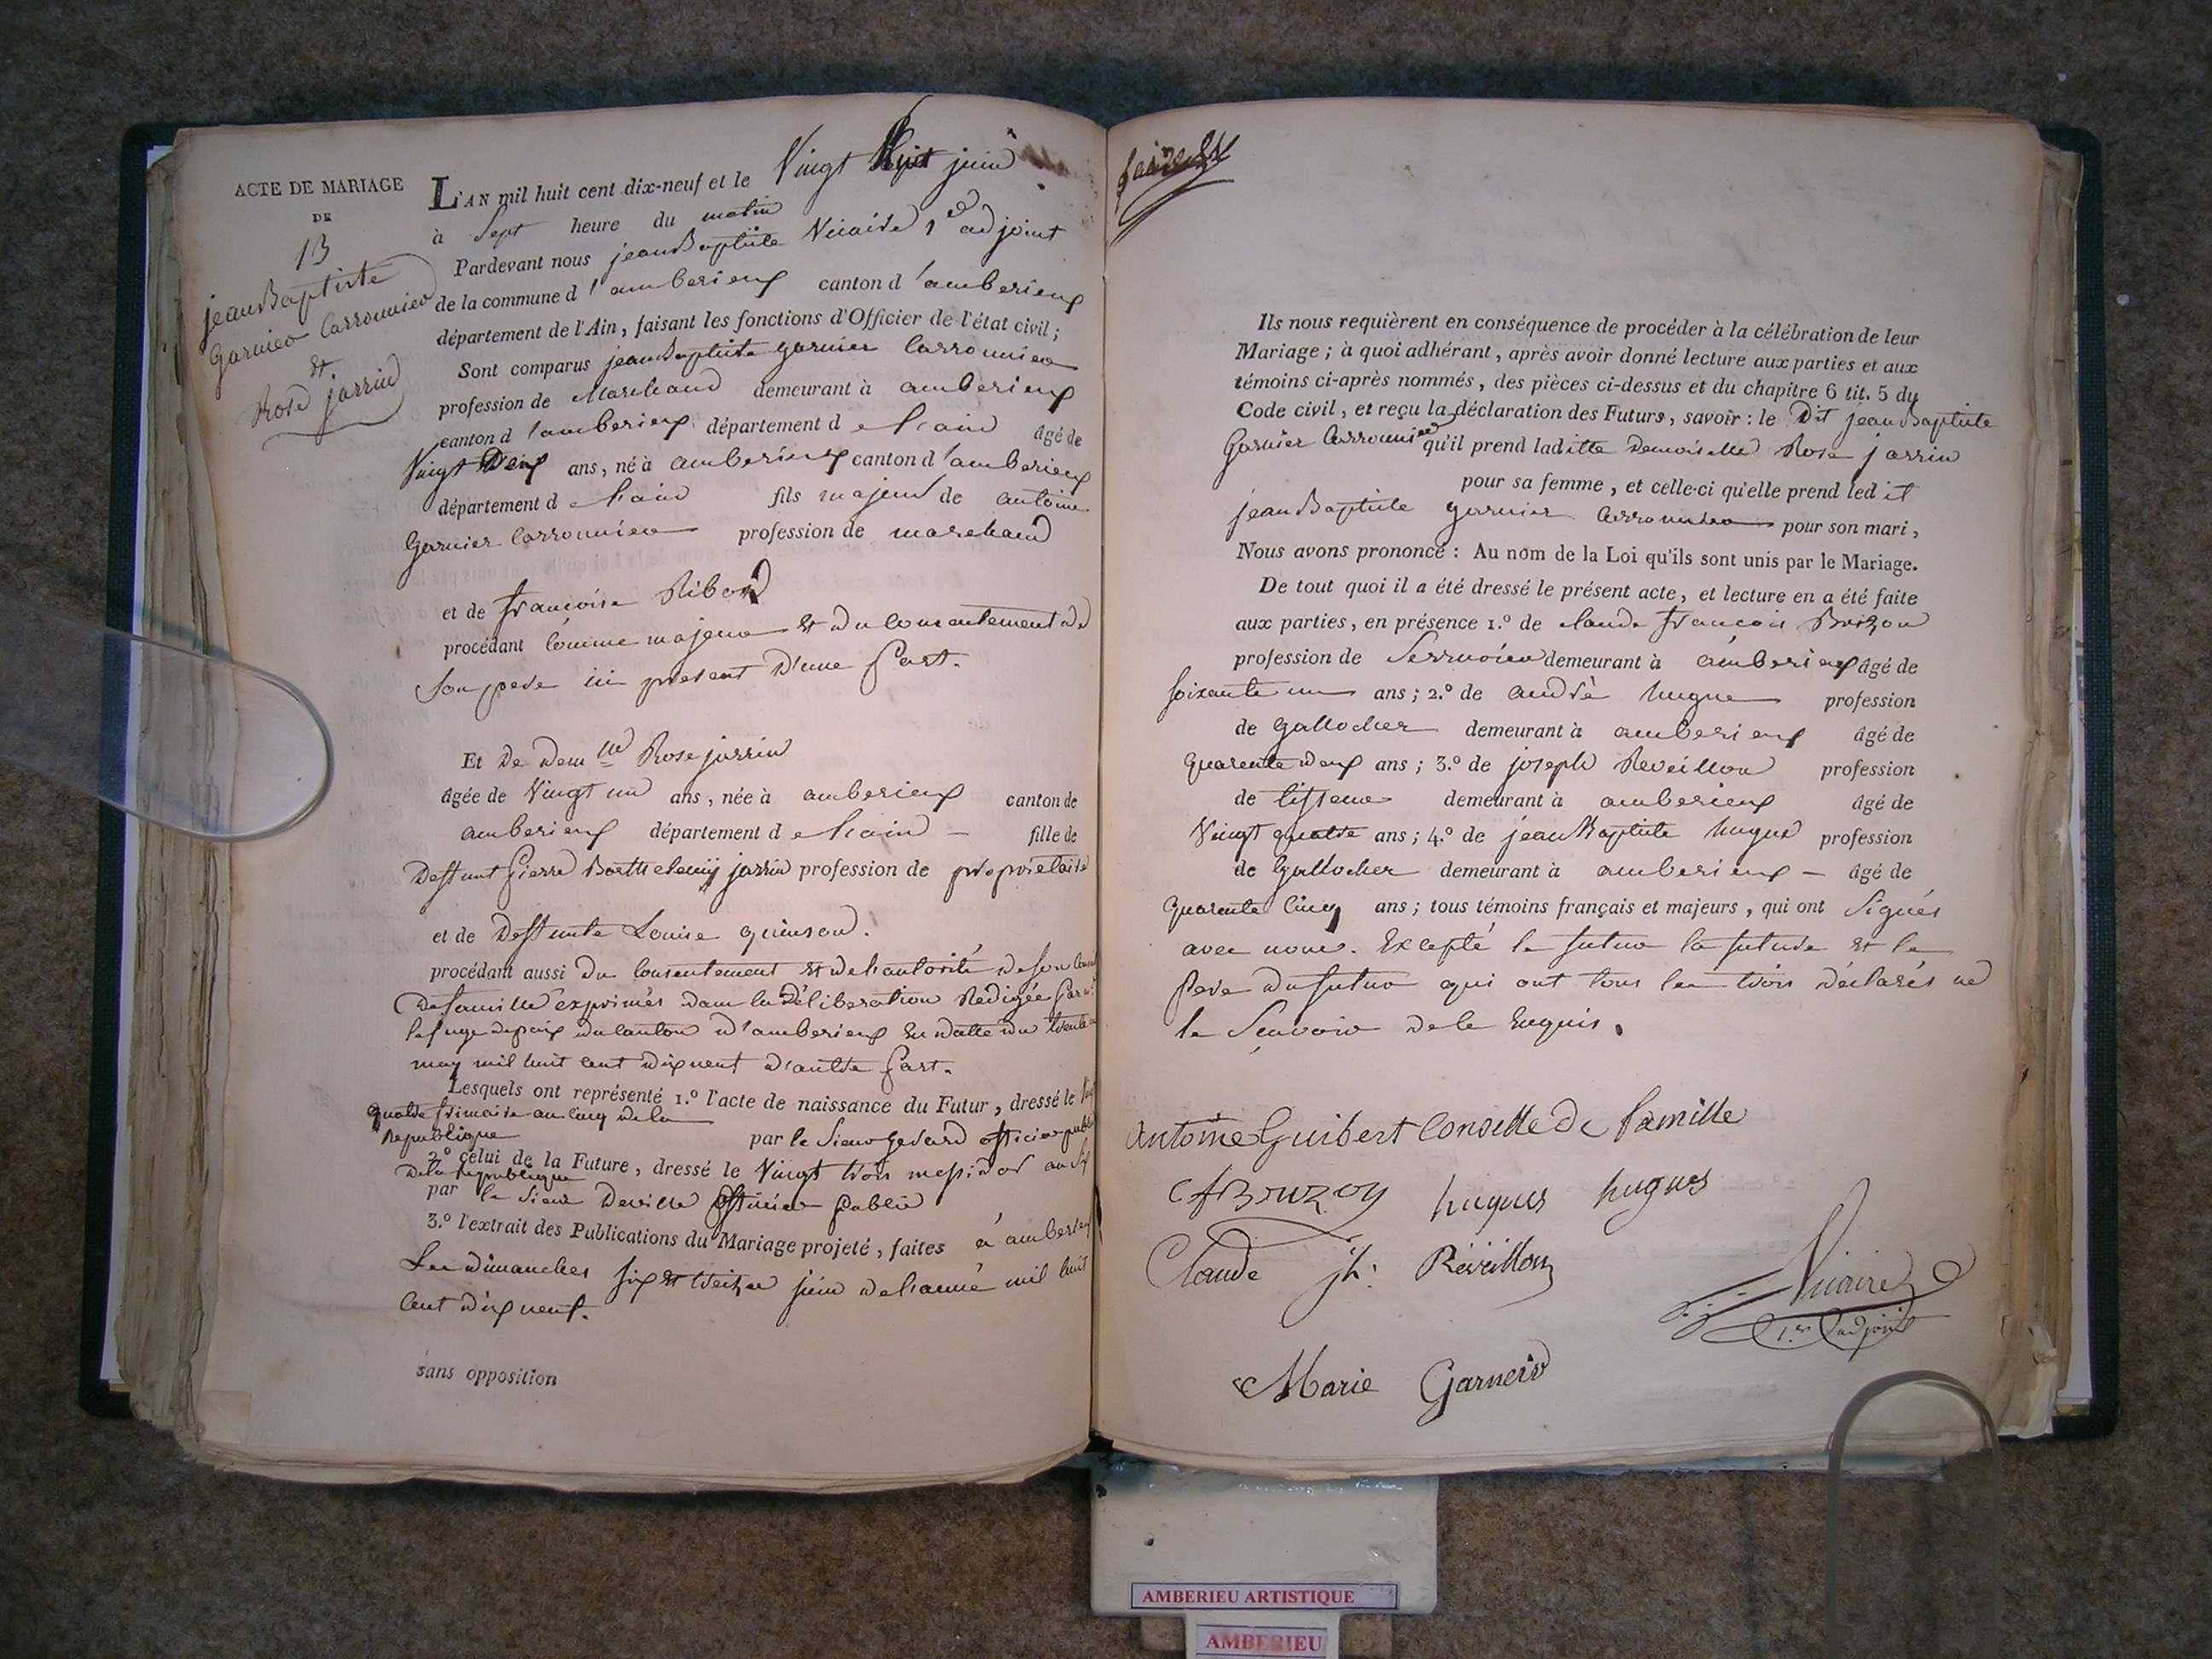 ACTE DE MARIAGE
DE
13
jean Baptiste
Garnier Carronnier
et
Rose jarrin
L'AN mil huit cent dix-neuf et le Vingt Huit juin
à Sept heure du matin
Pardevant nous jean Baptiste Vicaire 1er adjoint
de la commune d'amberieux canton d'amberieux
département de l'Ain, faisant les fonctions d'Officier de l'état civil;
Sont comparus jean Baptiste garnier Carronnier
profession de Marchand demeurant à amberieux
canton d'amberieux département de l'ain âgé de
Vingt Deux ans, né à amberieux canton d'amberieux
département de l'ain fils majeur de antoine
Garnier Carronnier profession de marchand
et de francoise Ribod
procédant Comme majeur et du Consentement de
Son pere ici present d'une part.
Et De Demlle Rose jarrin
âgée de Vingt un ans, née à amberieux canton de
amberieux département de l'ain fille de
Deffunt pierre Barthelemy jarrin profession de propriétaire
et de Deffunte Louise quinson.
procédant aussi Du Consentement et de l'autorité de son Conseil
De famille exprimés dans la Délibération Rédigée par
le juge de paix du canton d'amberieux En datte du trente
may mil huit cent dix neuf d'autre part.
Lesquels ont représenté 1.º l'acte de naissance du Futur, dressé le Vingt
quatre frimaire an cinq de la
Republique par le Sieur Gerard officier public
2º celui de la Future, dressé le Vingt trois messidor an Six
De la Republique
par le Sieur Deville officier public
3.º l'extrait des Publications du Mariage projeté, faites à amberieux
Les dimanches six et treize juin de l'année mil huit
cent dix neuf.
sans opposition
Ils nous requièrent en conséquence de procéder à la célébration de leur
Mariage; à quoi adhérant, après avoir donné lecture aux parties et aux
témoins ci-après nommés, des pièces ci-dessus et du chapitre 6 tit. 5 du
Code civil, et reçu la déclaration des Futurs, savoir: le Dit jean Baptiste
Garnier Carronnier qu'il prend laditte Demoiselle Rose jarrin
pour sa femme, et celle-ci qu'elle prend ledit
jean Baptiste garnier Carronnier pour son mari,
Nous avons prononcé: Au nom de la Loi qu'ils sont unis par le Mariage.
De tout quoi il a été dressé le présent acte, et lecture en a été faite
aux parties, en présence 1.º de claude françois
profession de Serrurier demeurant à amberieux âgé de
soixante un ans; 2.º de andré hugue profession
de Gallocher demeurant à amberieux âgé de
quarente deux ans; 3.º de joseph Reveillon profession
de tisseur demeurant à amberieux âgé de
Vingt quatre ans; 4.º de jean Baptiste hugue profession
de Gallocher demeurant à amberieux âgé de
quarente Cinq ans; tous témoins français et majeurs, qui ont Signés
avec nous. Excepté le futur la future et le
pere du futur qui ont tous les trois déclarés ne
le Scavoir de ce Enquis.
Antoine Guibert Conseille De famille
hugues hugues
Claude jh: Réveillon
Vicaire
1er adjoint
Marie Garneir
AMBERIEU ARTISTIQUE
AMBERIEU